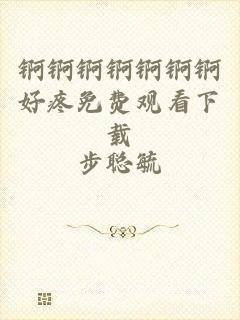 锕锕锕锕锕锕锕
好疼免费观看下
载
步聪毓